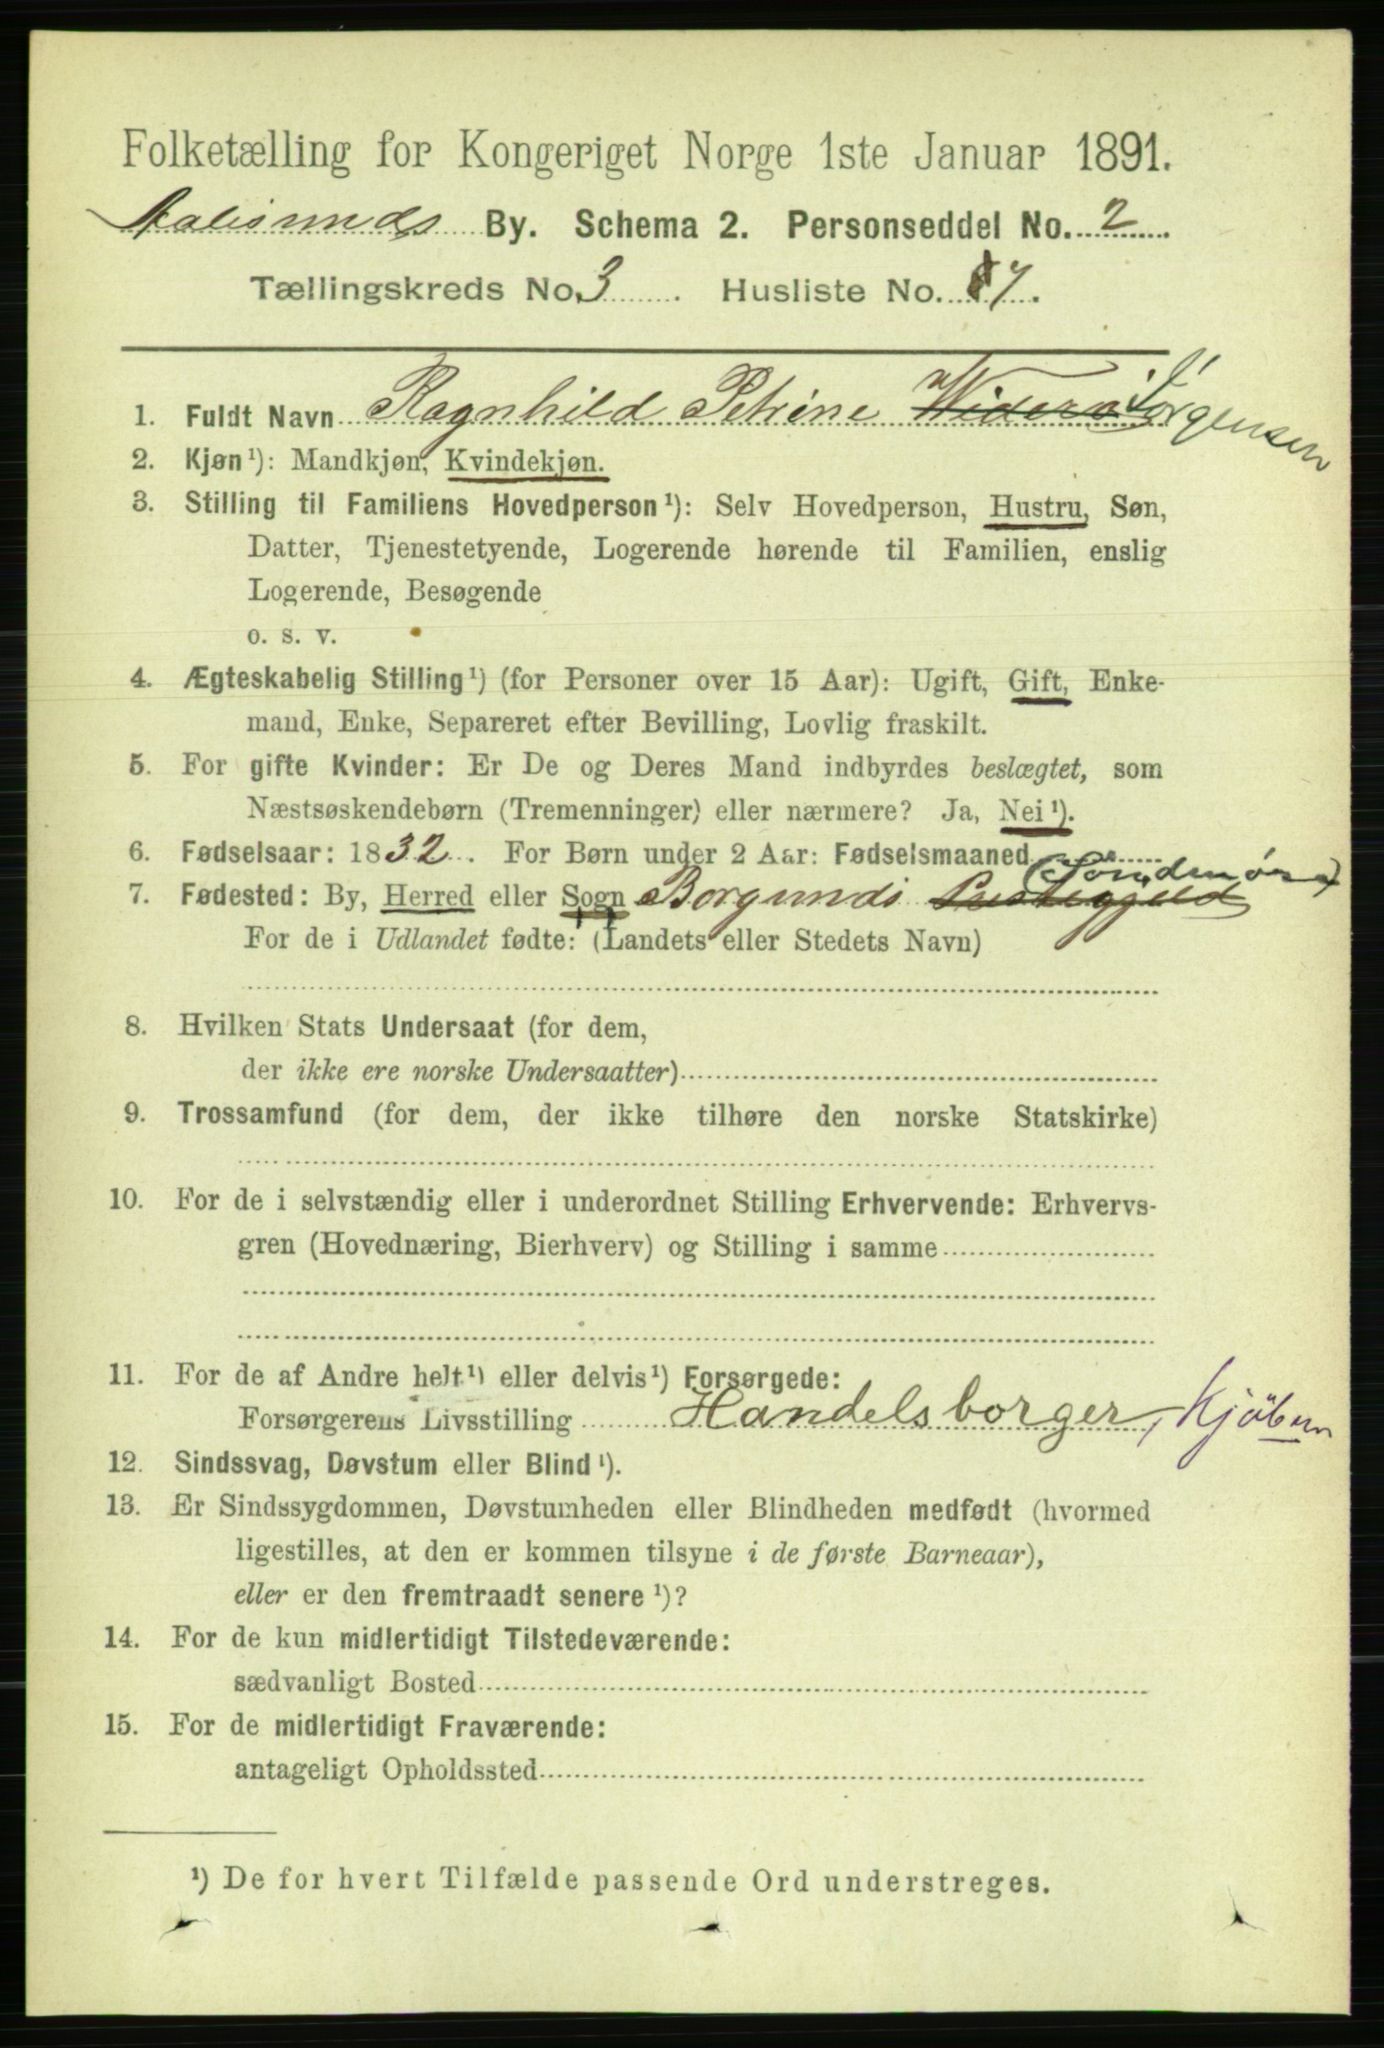 Folketælling for Kongeriget Norge 1ste Januar 1891.
Aalesunds By. Schema 2. Personseddel No. 2
Tællingskreds No. 3. Husliste No. 87.
1. Fuldt Navn Ragnhild Petrine Widerø Jørgensen
2. Kjøn¹): Mandkjøn, Kvindekjøn.
3. Stilling til Familiens Hovedperson¹): Selv Hovedperson, Hustru, Søn,
Datter, Tjenestetyende, Logerende hørende til Familien, enslig
Logerende, Besøgende
o. s. v.
4. Ægteskabelig Stilling¹) (for Personer over 15 Aar): Ugift, Gift, Enke-
mand, Enke, Separeret efter Bevilling, Lovlig fraskilt.
5. For gifte Kvinder: Er De og Deres Mand indbyrdes beslægtet, som
Næstsøskendebørn (Tremenninger) eller nærmere? Ja, Nei¹).
6. Fødselsaar: 1832. For Børn under 2 Aar: Fødselsmaaned
(Søndmøre)
7. Fødested: By, Herred eller Sogn Borgunds Prestegjeld
For de i Udlandet fødte: (Landets eller Stedets Navn)
8. Hvilken Stats Undersaat (for dem,
der ikke ere norske Undersaatter)
9. Trossamfund (for dem, der ikke tilhøre den norske Statskirke)
10. For de i selvstændig eller i underordnet Stilling Erhvervende: Erhvervs-
gren (Hovednæring, Bierhverv) og Stilling i samme
11. For de af Andre helt¹) eller delvis¹) Forsørgede:
Forsørgerens Livsstilling Handelsborger, Kjøbm
12. Sindssvag, Døvstum eller Blind¹).
13. Er Sindssygdommen, Døvstumheden eller Blindheden medfødt (hvormed
ligestilles, at den er kommen tilsyne i de første Barneaar),
eller er den fremtraadt senere¹)?
14. For de kun midlertidigt Tilstedeværende:
sædvanligt Bosted
15. For de midlertidigt Fraværende:
antageligt Opholdssted
¹) De for hvert Tilfælde passende Ord understreges.